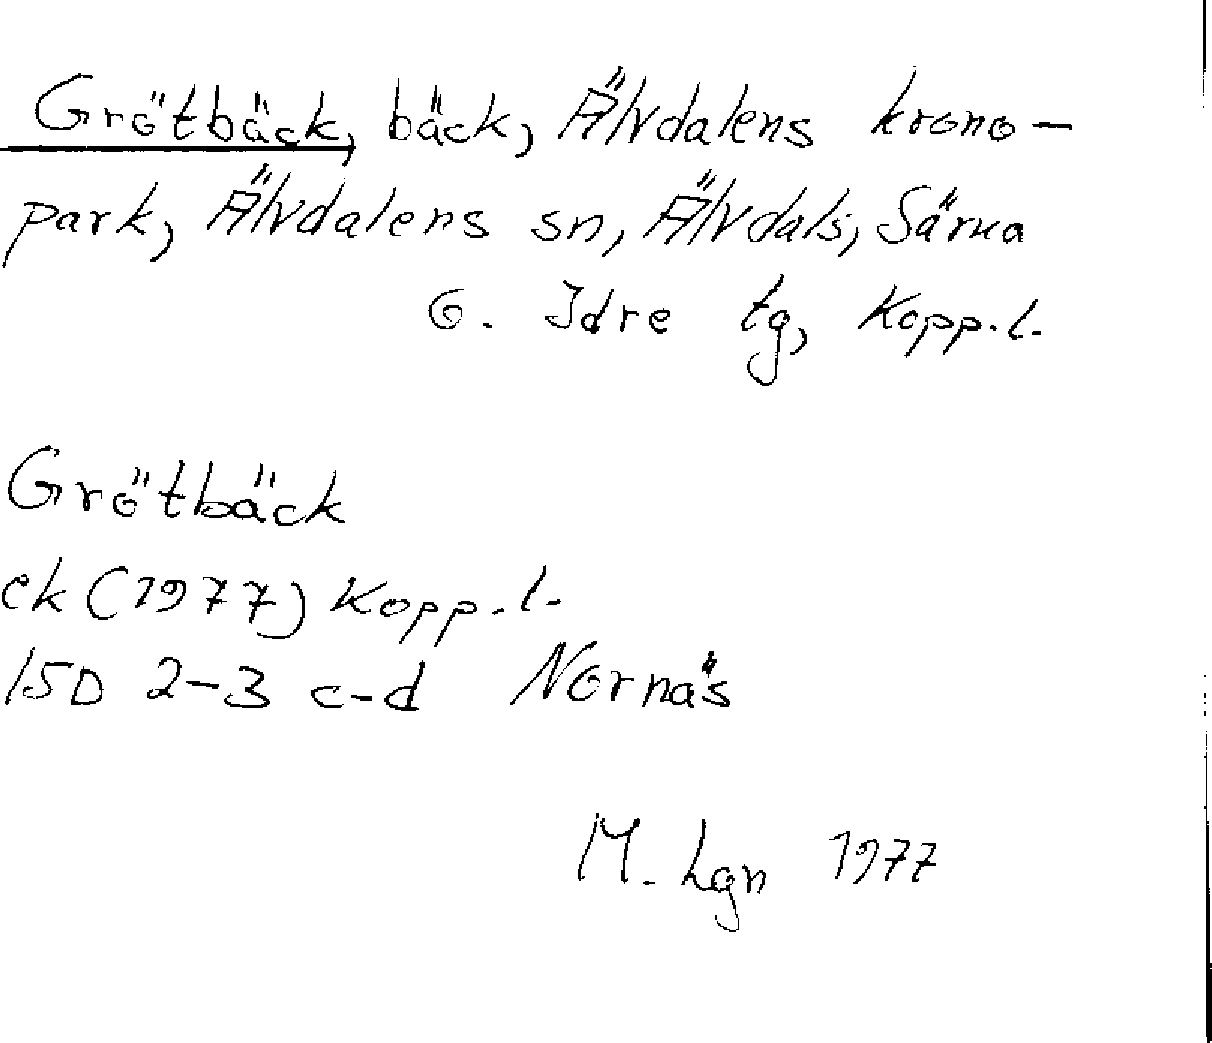 Grötbäck, bäck, Älvdalens krono-
park, Älvdalens sn, Älvdals, Särna
o. Idre tg, Kopp.l.
Grötbäck
ek (1977) Kopp.l.
15D 2-3 c-d Nornäs
M. Lgn 1977